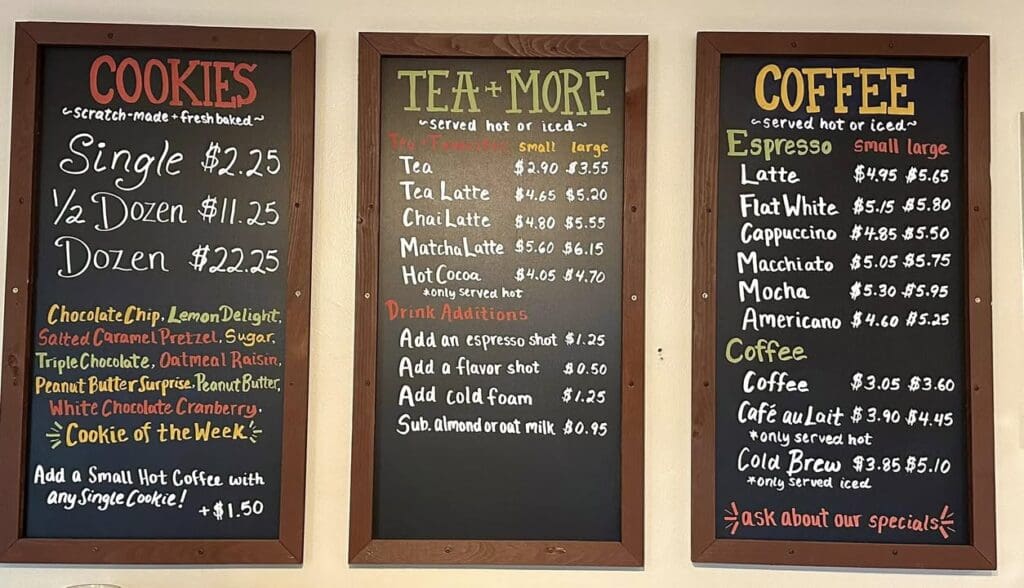 COOKIES
~scratch-made + fresh baked~
Single $2.25
1/2 Dozen $11.25
Dozen $22.25
Chocolate Chip, Lemon Delight,
Salted Caramel Pretzel, Sugar,
Triple Chocolate, Oatmeal Raisin,
Peanut Butter Surprise, Peanut Butter,
White Chocolate Cranberry,
Cookie of the Week
Add a Small Hot Coffee with
any Single Cookie!
+$1.50
TEA + MORE
~served hot or iced~
Tea + Favorites small large
Tea $2.90 $3.55
Tea Latte $4.65 $5.20
Chai Latte $4.80 $5.55
Matcha Latte $5.60 $6.15
Hot Cocoa $4.05 $4.70
*only served hot
Drink Additions
Add an espresso shot $1.25
Add a flavor shot $0.50
Add cold foam $1.25
Sub. almond or oat milk $0.95
COFFEE
~served hot or iced~
Espresso small large
Latte $4.95 $5.65
Flat White $5.15 $5.80
Cappuccino $4.85 $5.50
Macchiato $5.05 $5.75
Mocha $5.30 $5.95
Americano $4.60 $5.25
Coffee
Coffee $3.05 $3.60
Café au Lait $3.90 $4.45
*only served hot
Cold Brew $3.85 $5.10
*only served iced
ask about our specials